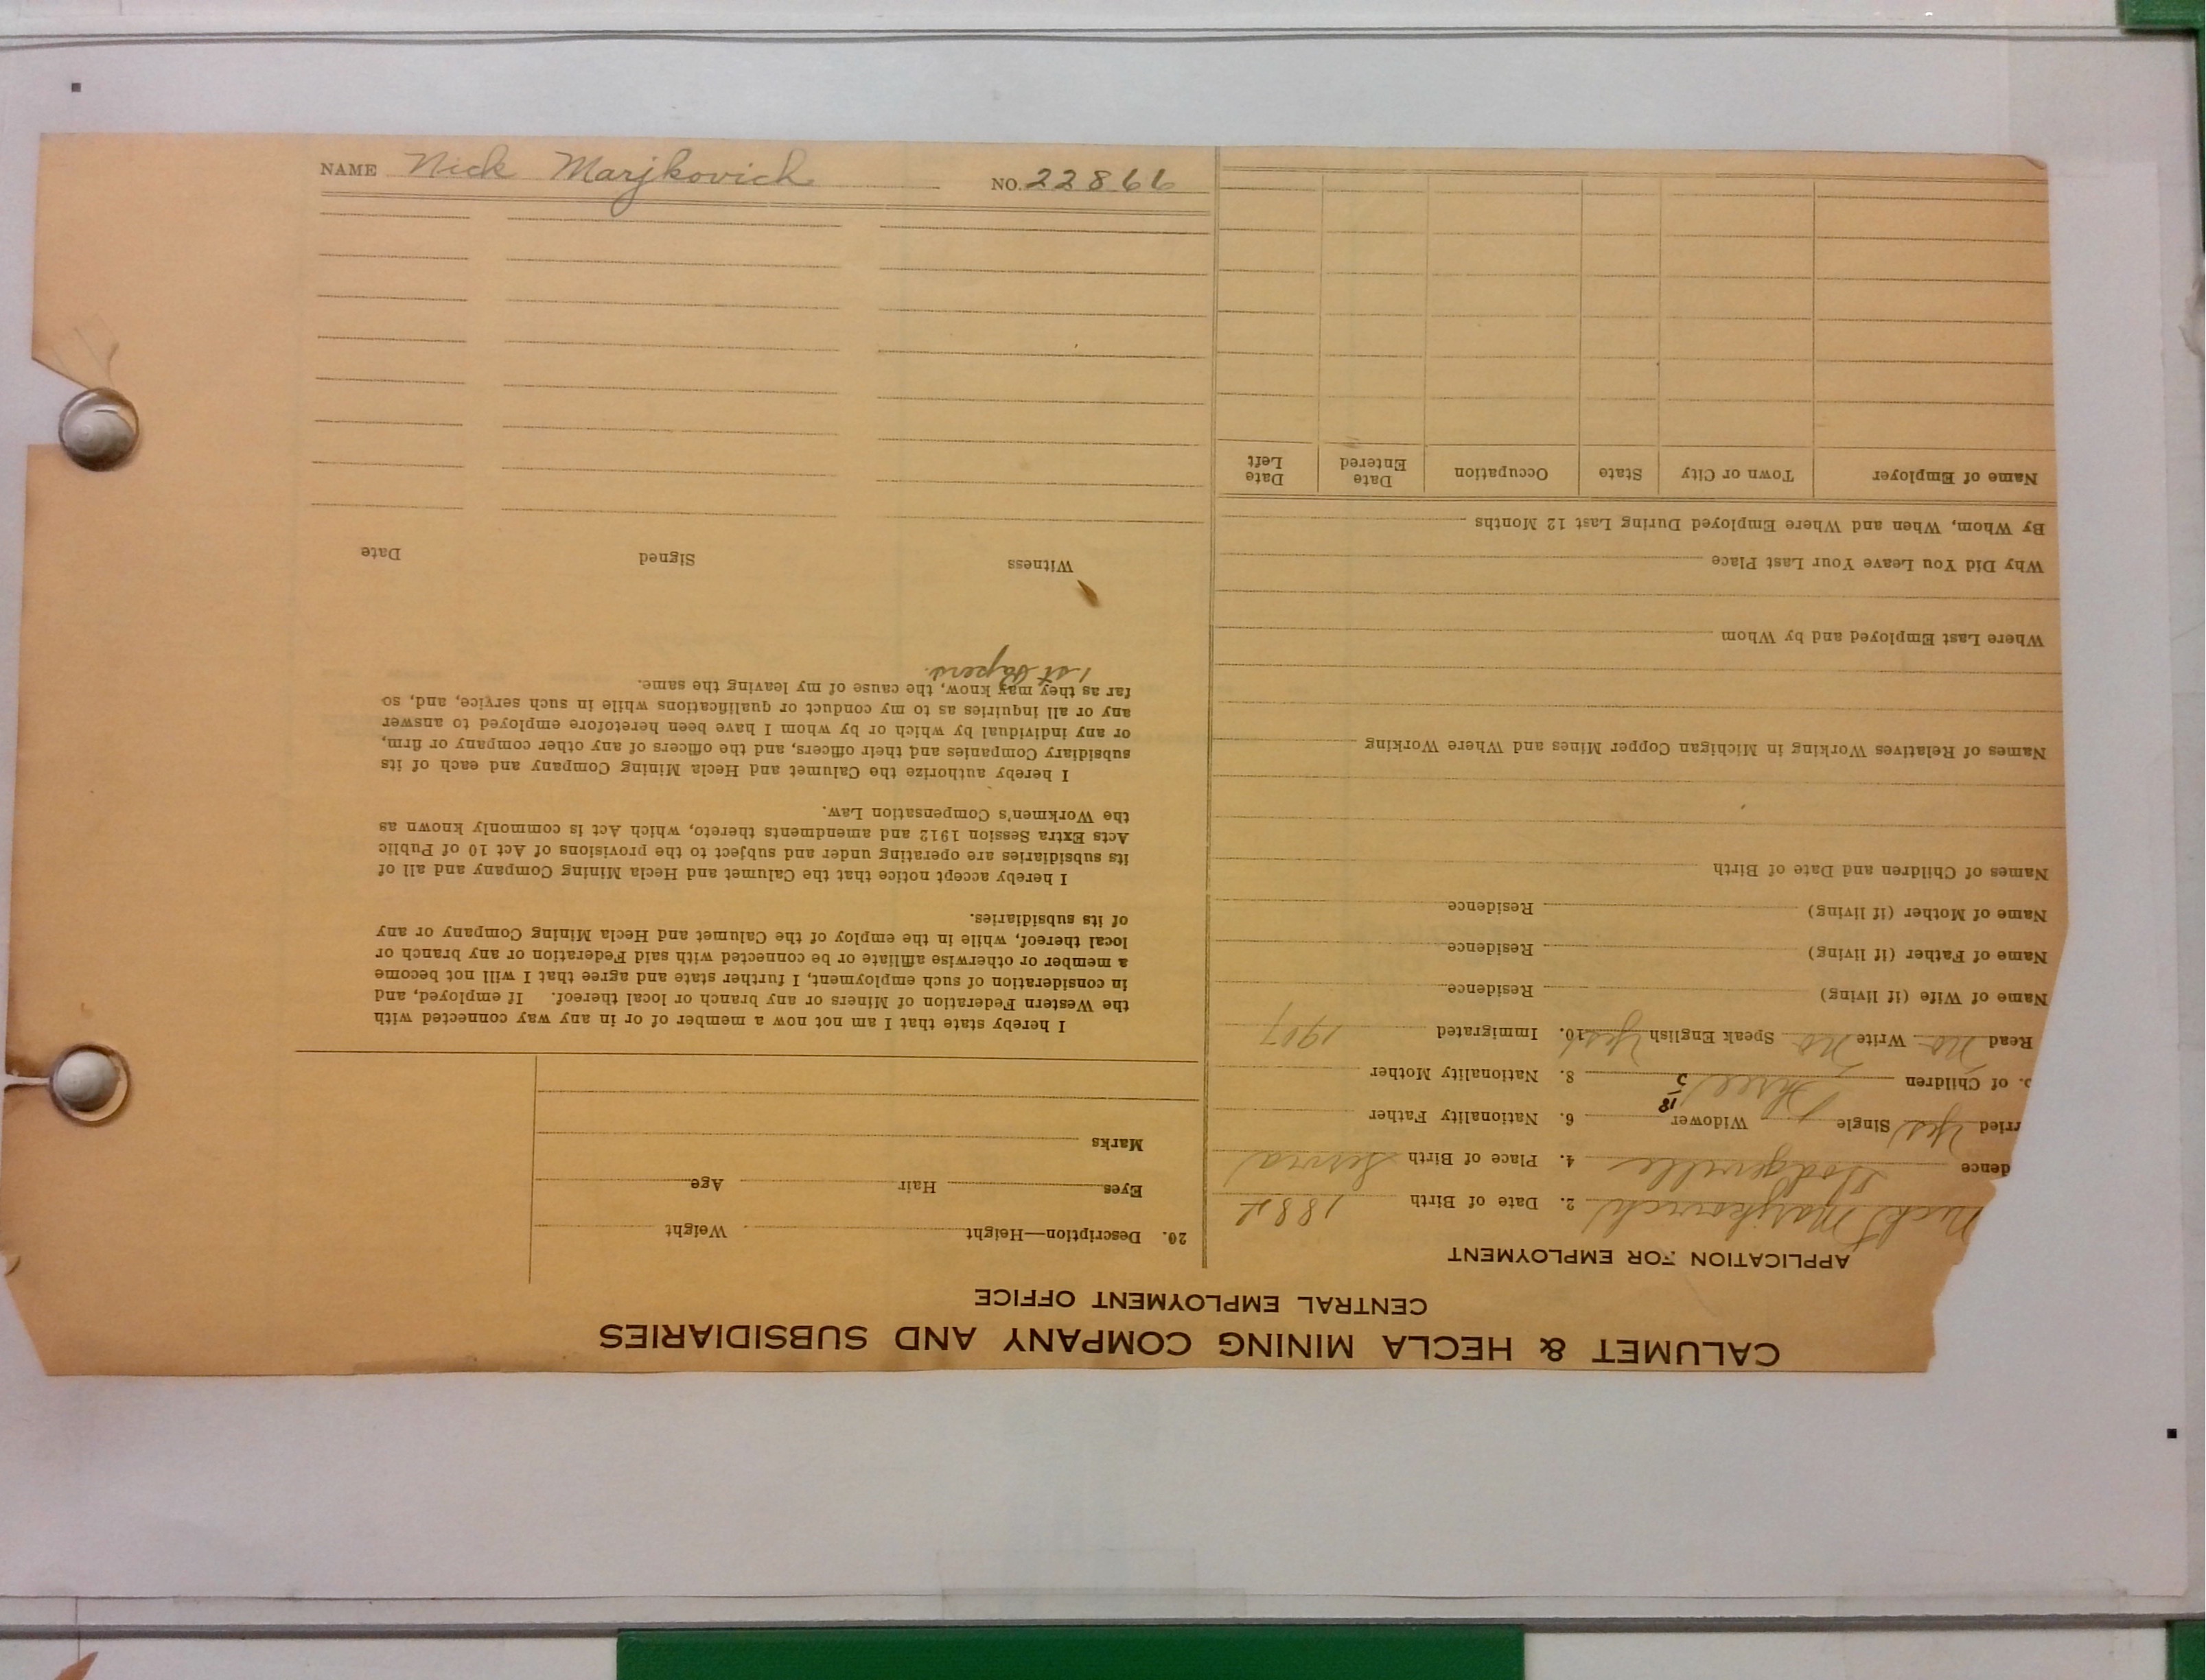 NAME Nick Marjkovich NO. 22866
CALUMET & HECLA MINING COMPANY AND SUBSIDIARIES
CENTRAL EMPLOYMENT OFFICE
APPLICATION FOR EMPLOYMENT
Nick Marjkovich 2. Date of Birth 1884
dence Dodgeville 4. Place of Birth Servia
rried Yes Single Widower 6. Nationality Father
18
o. of Children Three 5 8. Nationality Mother
Read No Write No Speak English Yes 10. Immigrated 1907
Name of Wife (if living) Residence
Name of Father (if living) Residence
Name of Mother (if living) Residence
Names of Children and Date of Birth
Names of Relatives Working in Michigan Copper Mines and Where Working
Where Last Employed and by Whom
Why Did You Leave Your Last Place
By Whom, When and Where Employed During Last 12 Months
Name of Employer Town or City State Occupation Date Entered Date Left
20. Description—Height Weight
Eyes Hair Age
Marks
I hereby state that I am not now a member of or in any way connected with
the Western Federation of Miners or any branch or local thereof. If employed, and
in consideration of such employment, I further state and agree that I will not become
a member or otherwise affiliate or be connected with said Federation or any branch or
local thereof, while in the employ of the Calumet and Hecla Mining Company or any
of its subsidiaries.
I hereby accept notice that the Calumet and Hecla Mining Company and all of
its subsidiaries are operating under and subject to the provisions of Act 10 of Public
Acts Extra Session 1912 and amendments thereto, which Act is commonly known as
the Workmen's Compensation Law.
I hereby authorize the Calumet and Hecla Mining Company and each of its
subsidiary Companies and their officers, and the officers of any other company or firm,
or any individual by which or by whom I have been heretofore employed to answer
any or all inquiries as to my conduct or qualifications while in such service, and, so
far as they may know, the cause of my leaving the same.
1st Papers.
Witness Signed Date